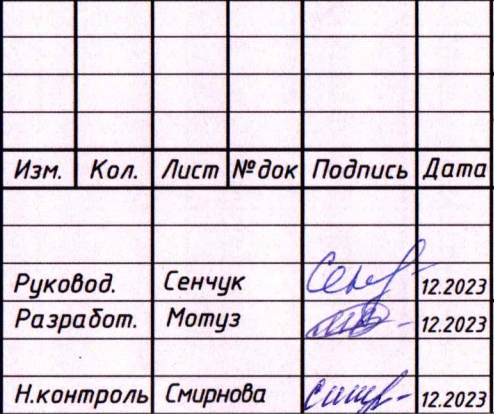 Изм. Кол. Лист №док Подпись Дата
Руковод. Сенчук 12.2023
Разработ. Мотуз 12.2023
Н.контроль Смирнова 12.2023